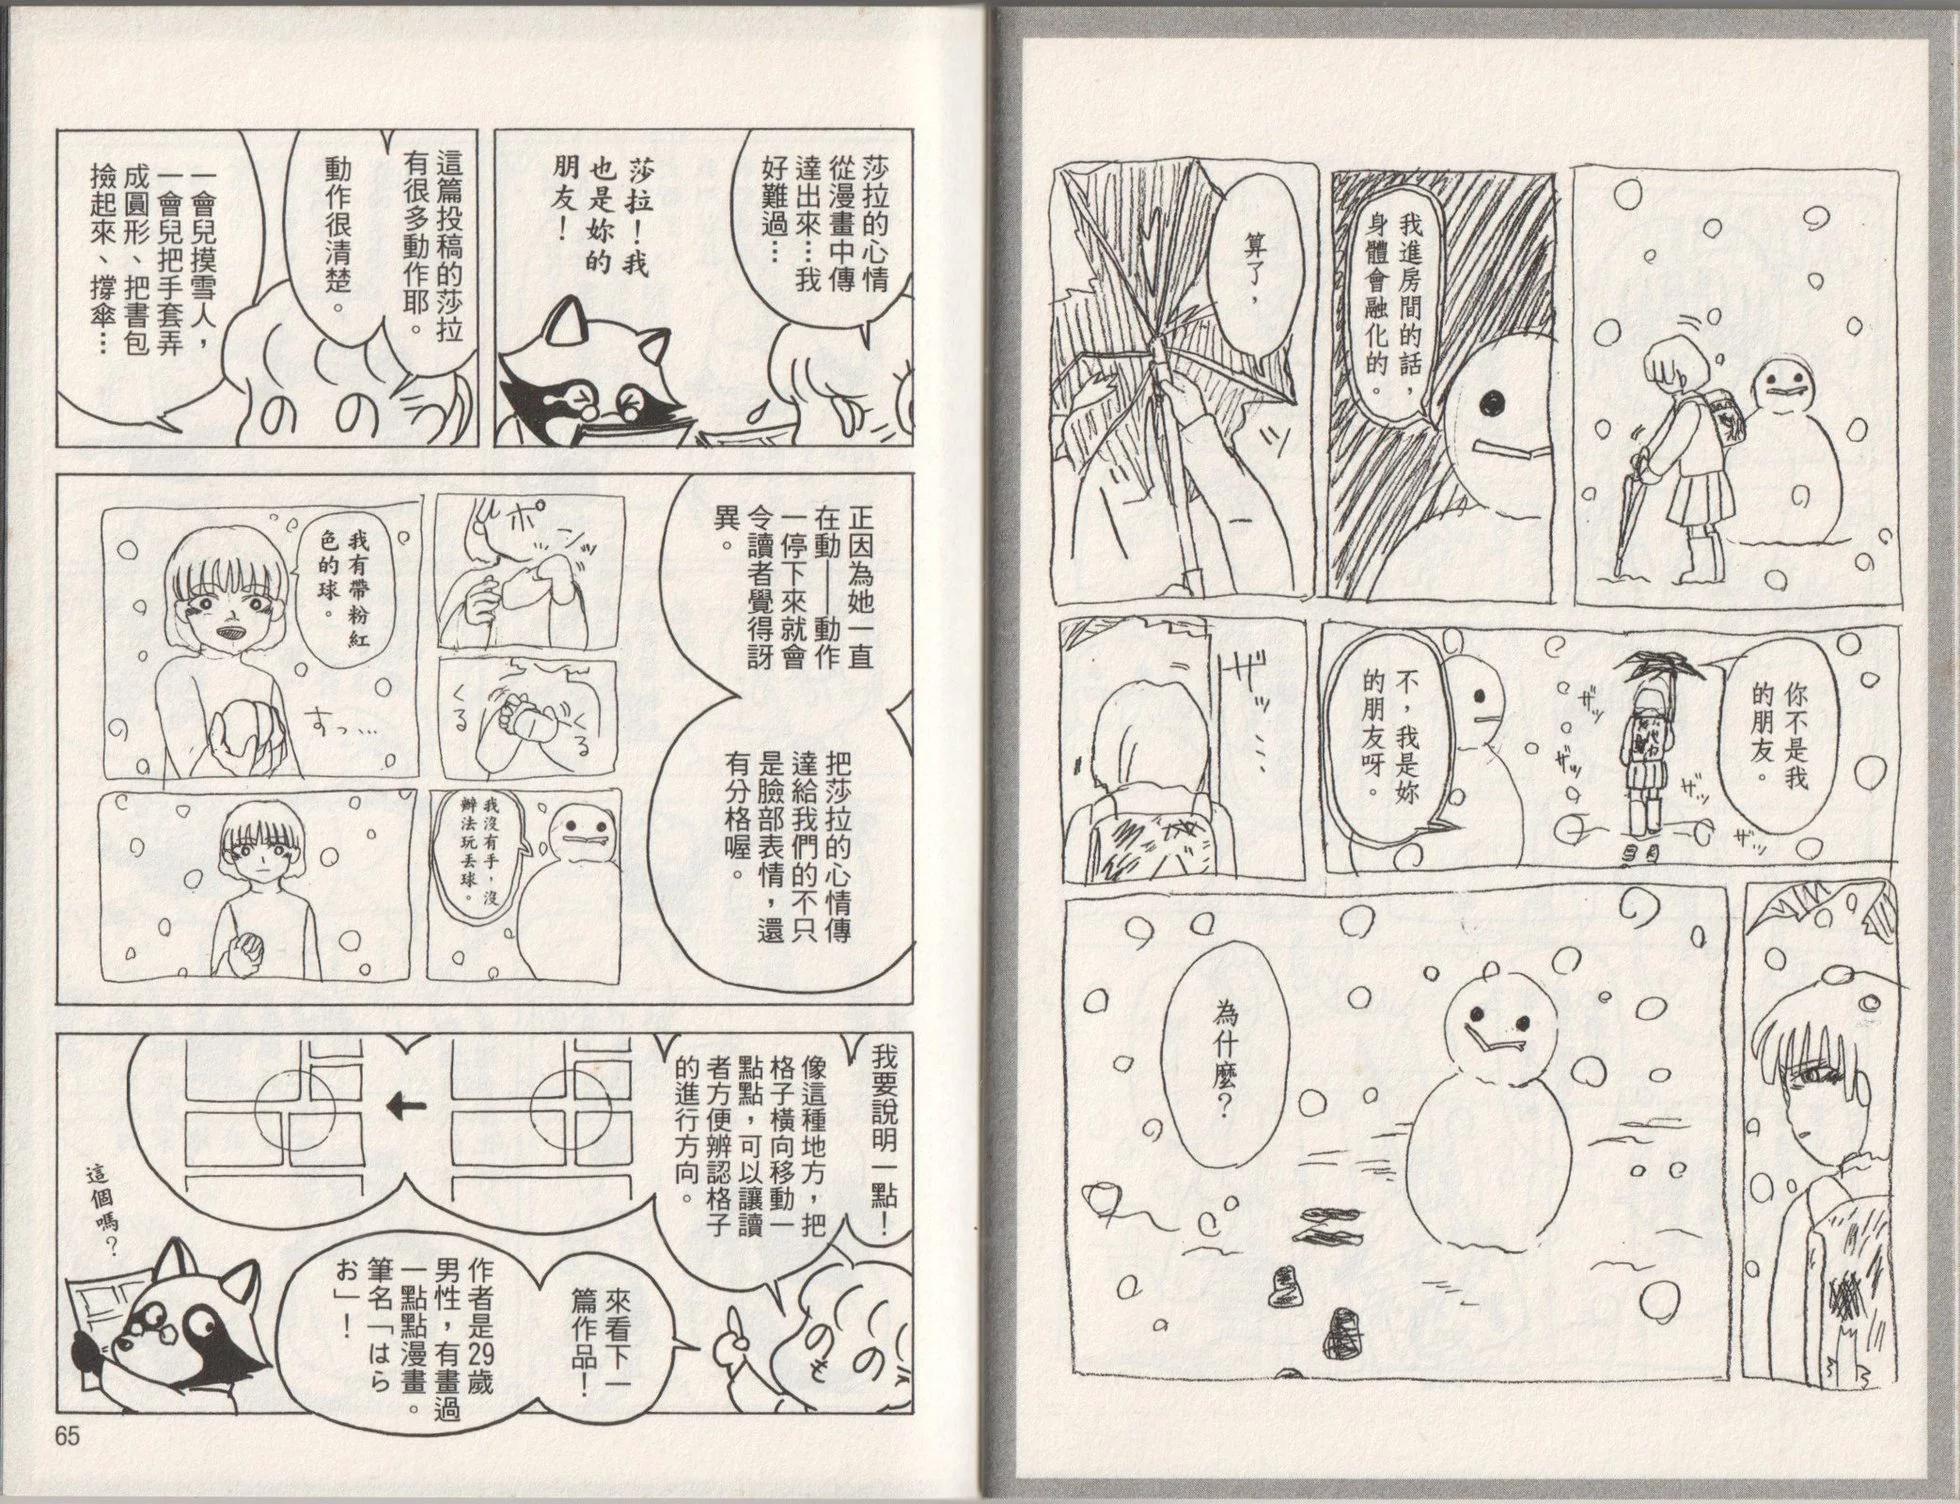 我進房間的話，
身體會融化的。
算了，
你不是我
的朋友。
ザッ
ザッ
ザッ
ザッ
不，我是妳
的朋友呀。
ザッ…
為什麼？
莎拉的心情
從漫畫中傳
達出來…我
好難過…
莎拉！我
也是妳的
朋友！
這篇投稿的莎拉
有很多動作耶。
動作很清楚。
一會兒摸雪人，
一會兒把手套弄
成圓形、把書包
撿起來、撐傘…
正因為她一直
在動——動作
一停下來就會
令讀者覺得訝
異。
把莎拉的心情傳
達給我們的不只
是臉部表情，還
有分格喔。
ポンッ
くる
くる
我有帶粉紅
色的球。
すっ…
我沒有手，沒
辦法玩丟球。
我要說明一點！
像這種地方，把
格子橫向移動一
點點，可以讓讀
者方便辨認格子
的進行方向。
來看下一
篇作品！
作者是29歲
男性，有畫過
一點點漫畫。
筆名「はら
お」！
這個嗎？
65